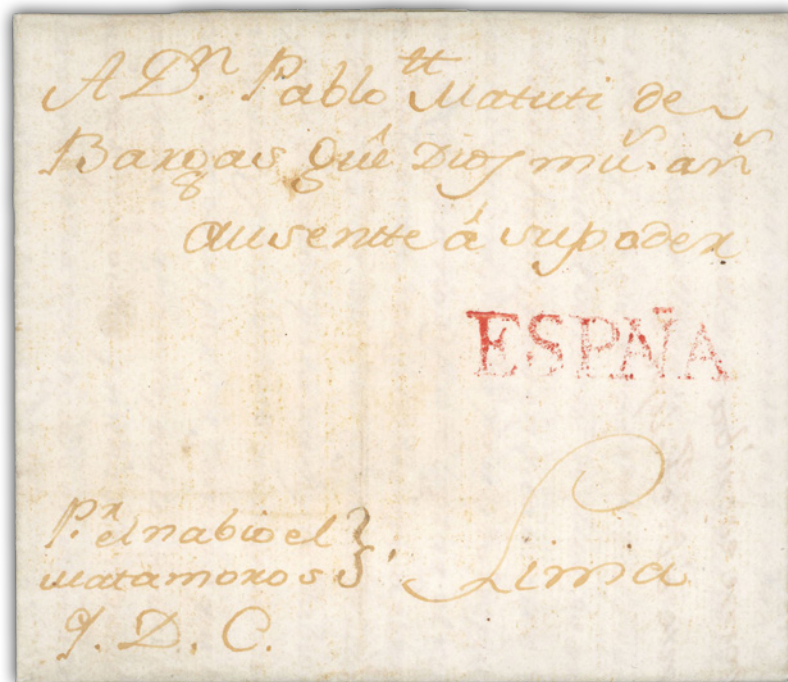 A Dn. Pablo tt Matuti de
Bargas quê Dios mũ. añ
ausentte â su poder
ESPÑA
P.r el nabio el
Matamoros
q. D. C.
Lima